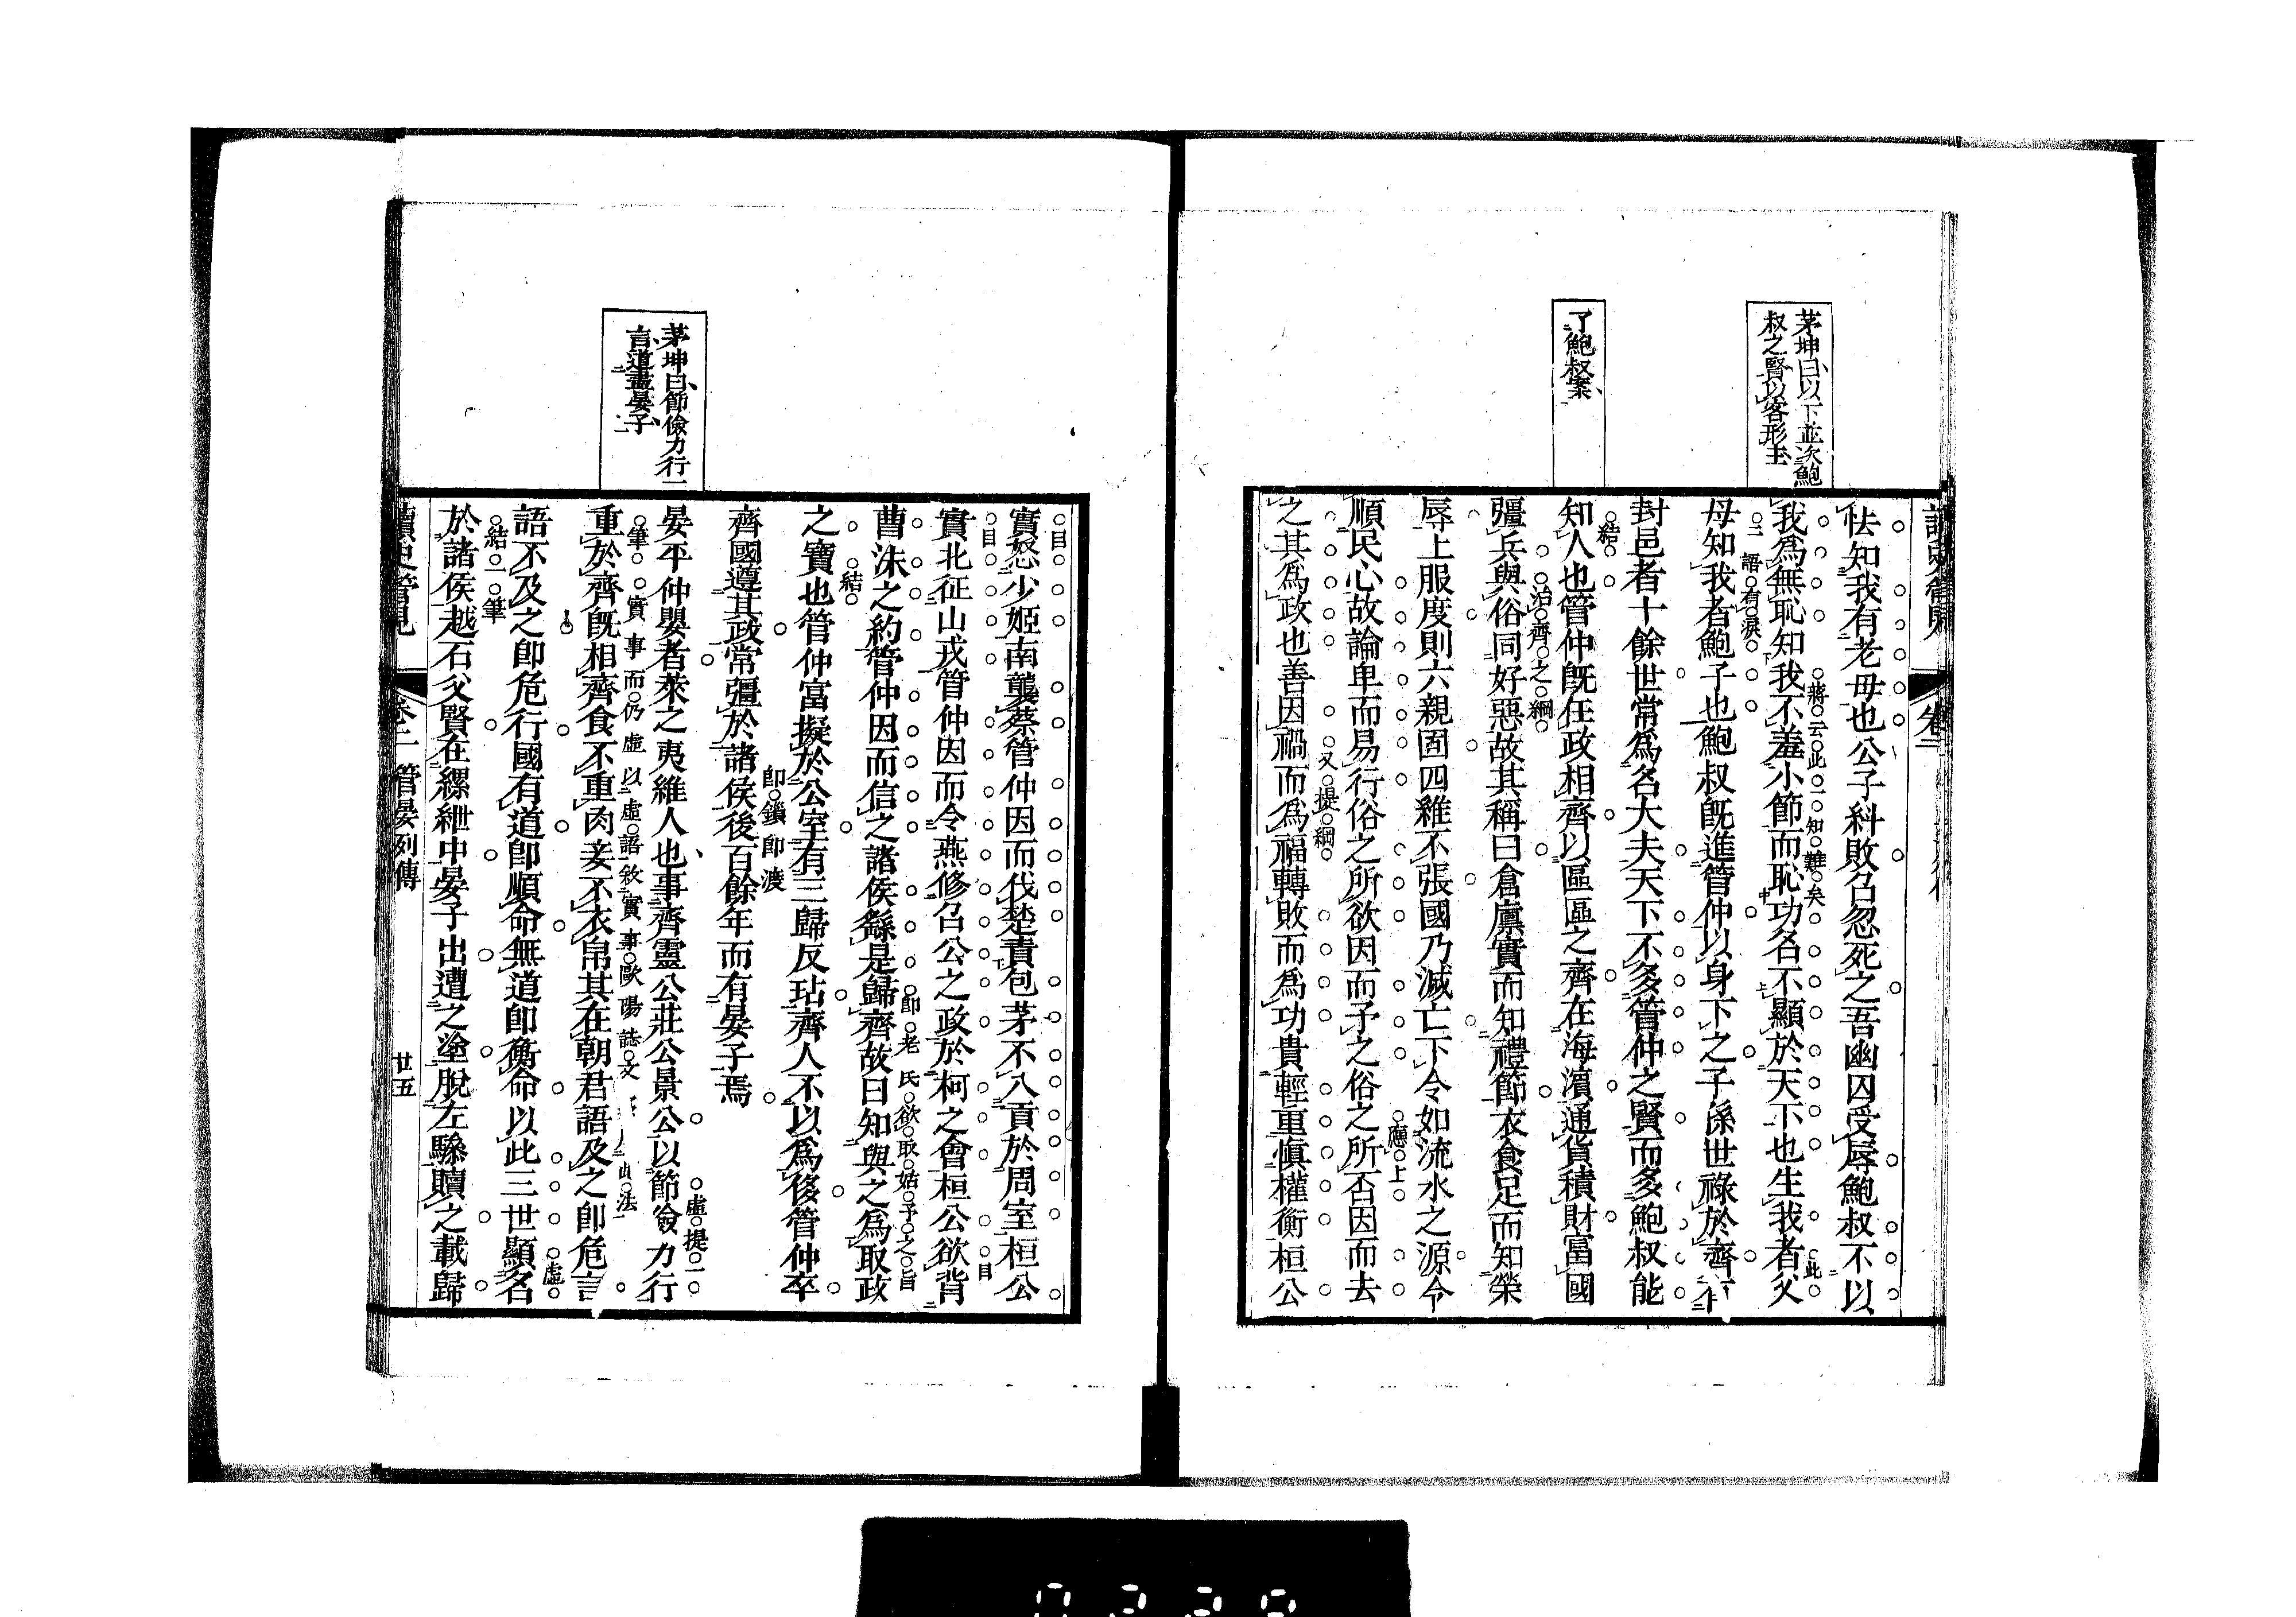 茅坤曰以下並次鮑
叔之賢以客形主
了鮑叔案
怯知我有老母也公子糾敗召忽死之吾幽囚受辱鮑叔不以
蔣云此一知難矣
此
我爲無恥知我不羞小節而恥功名不顯於天下也生我者父
二語有淚
母知我者鮑子也鮑叔旣進管仲以身下之子孫世祿於齊有
封邑者十餘世常爲名大夫天下不多管仲之賢而多鮑叔能
結
知人也管仲旣任政相齊以區區之齊在海濱通貨積財富國
治齊之綱
彊兵與俗同好惡故其稱曰倉廩實而知禮節衣食足而知榮
辱上服度則六親固四維不張國乃滅亡下令如流水之源令
應上
順民心故論卑而易行俗之所欲因而予之俗之所否因而去
又提綱
之其爲政也善因禍而爲福轉敗而爲功貴輕重愼權衡桓公
茅坤曰節儉力行一
言道盡晏子
目
實怒少姬南襲蔡管仲因而伐楚責包茅不入貢於周室桓公
目
目
實北征山戎管仲因而令燕修召公之政於柯之會桓公欲背
卽老氏欲取姑予之旨
曹沬之約管仲因而信之諸侯繇是歸齊故曰知與之爲取政
結
之寶也管仲富擬於公室有三歸反坫齊人不以爲侈管仲卒
卽鎖卽渡
齊國遵其政常彊於諸侯後百餘年而有晏子焉
虛提一
晏平仲嬰者萊之夷維人也事齊靈公莊公景公以節儉力行
筆實事而仍虛以虛語敘實事歐陽誌文
法
重於齊旣相齊食不重肉妾不衣帛其在朝君語及之卽危言
虛
語不及之卽危行國有道卽順命無道卽衡命以此三世顯名
結一筆
於諸侯越石父賢在縲紲中晏子出遭之塗脫左驂贖之載歸
讀史管見
卷二 管晏列傳
廿五